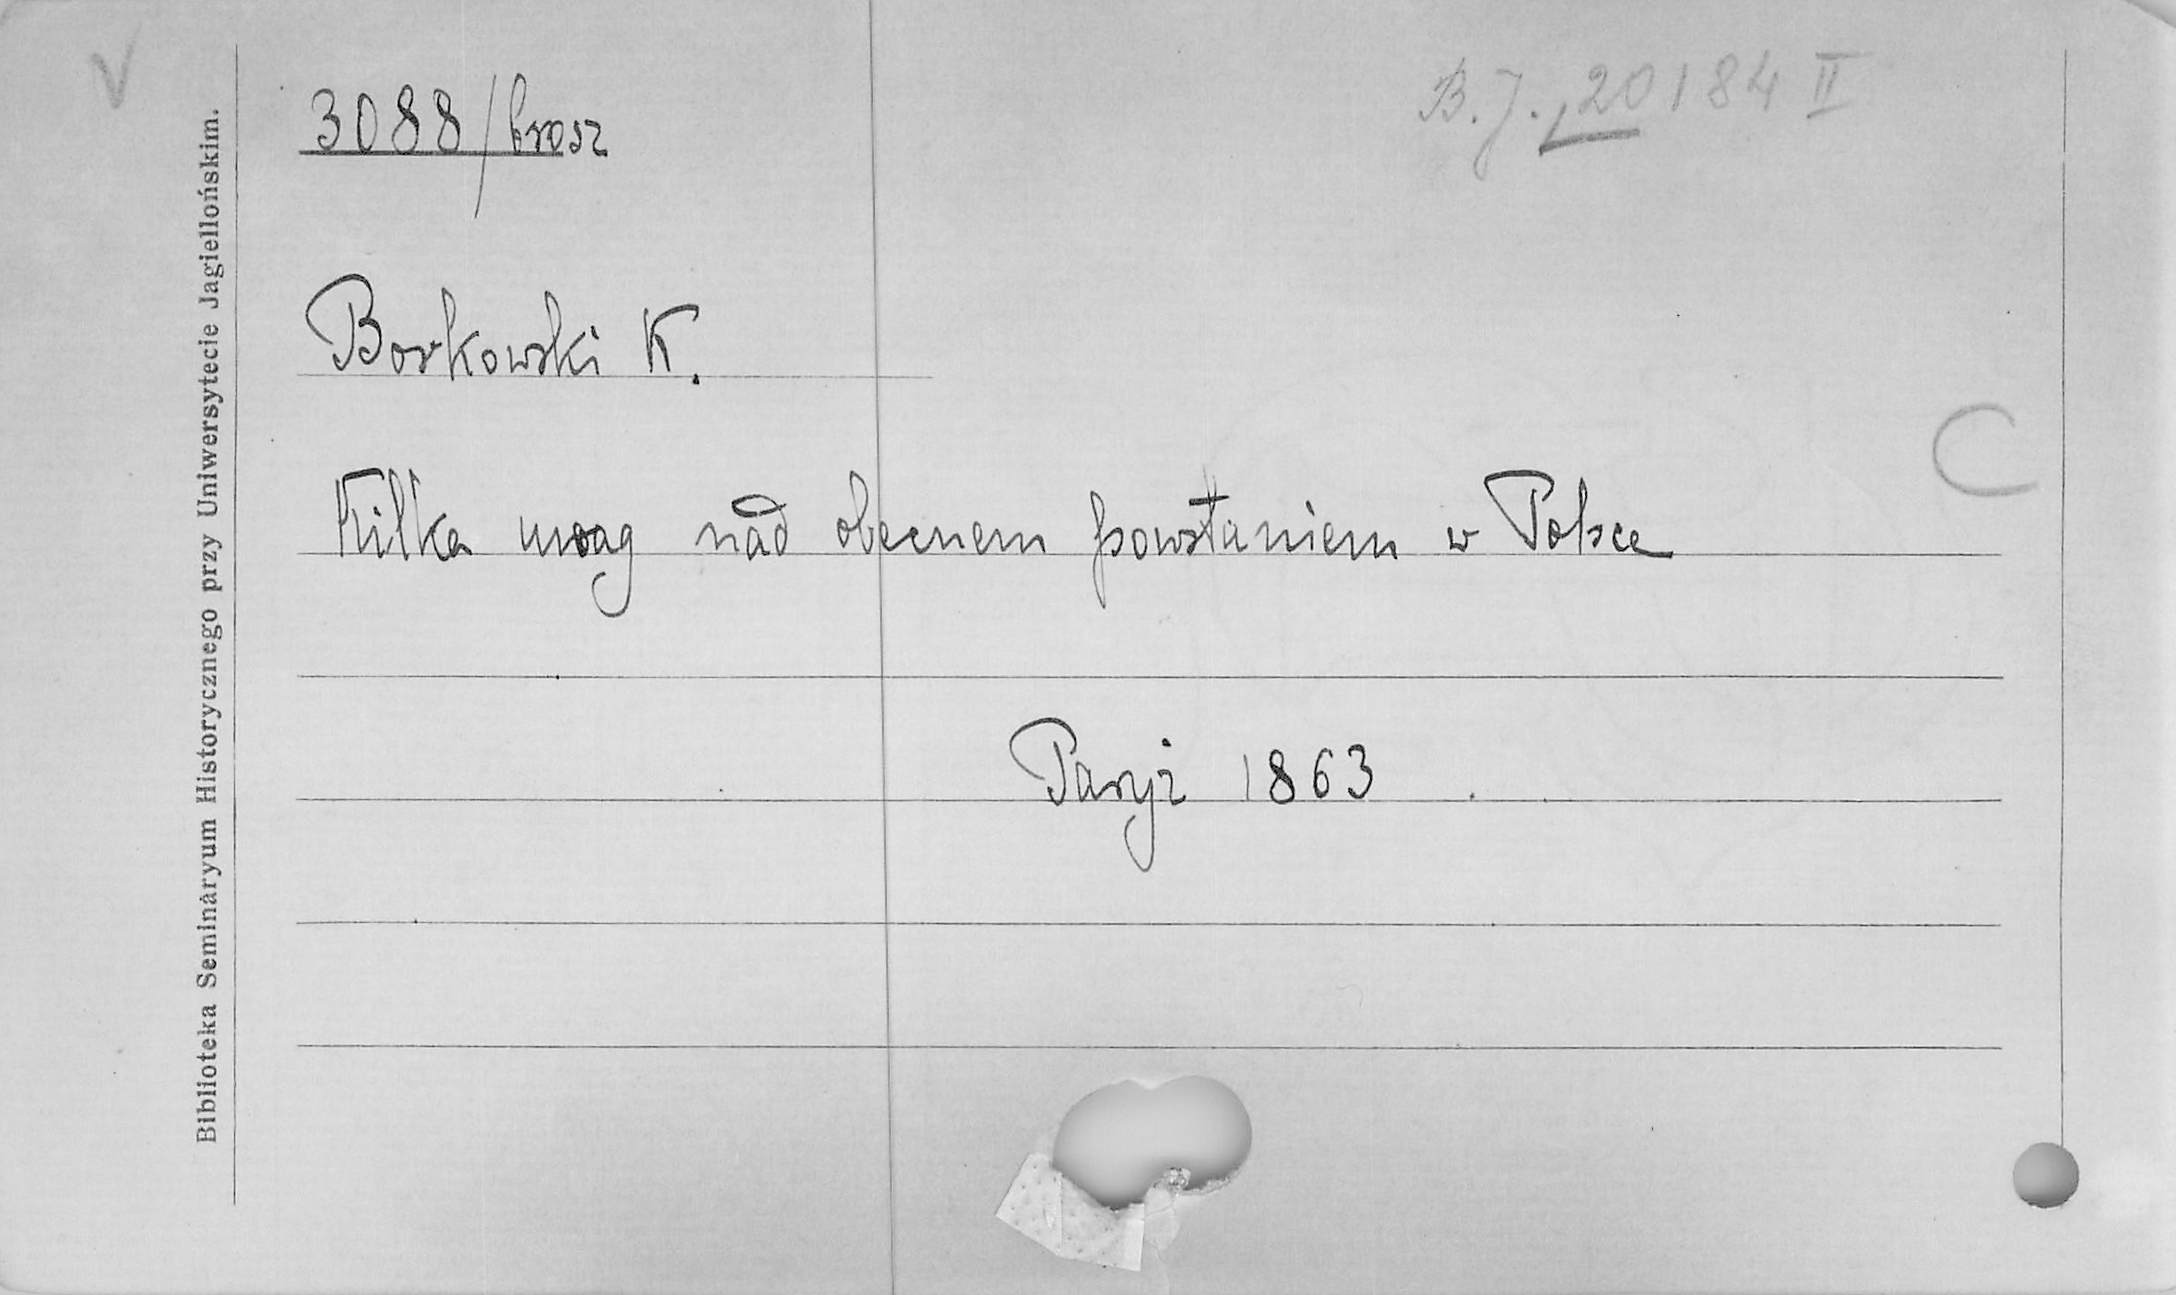 V
3088/brosz
B.J. 20184 II
Borkowski K.
C
Kilka uwag nad obecnem powstaniem w Polsce
Paryż 1863
Biblioteka Seminaryum Historycznego przy Uniwersytecie Jagiellońskim.